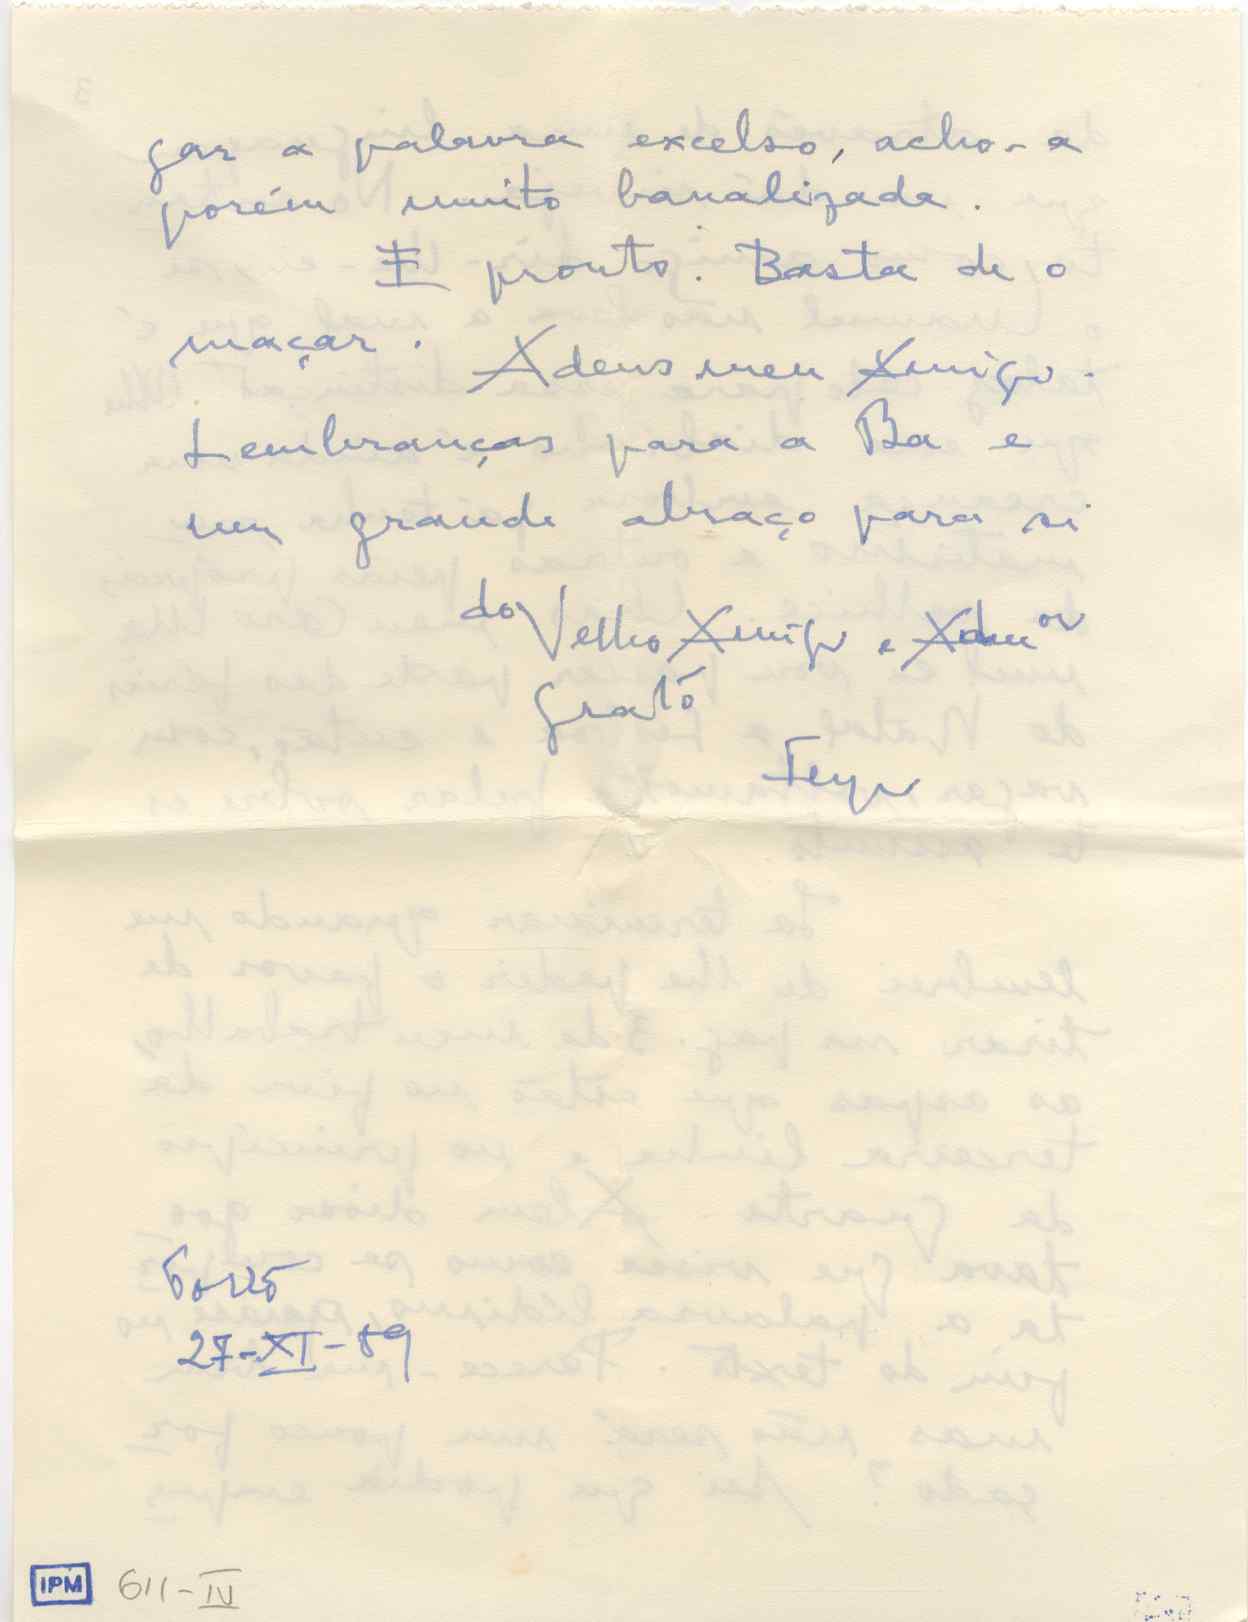 gar a palavra excelso, acho-a
porém muito banalizada.
E pronto. Basta de o
maçar. Adeus meu Amigo.
Lembranças para a Ba e
um grande abraço para si
do Velho Amigo e Admor
grato
Porto
27-XI-89
IPM 611-IV